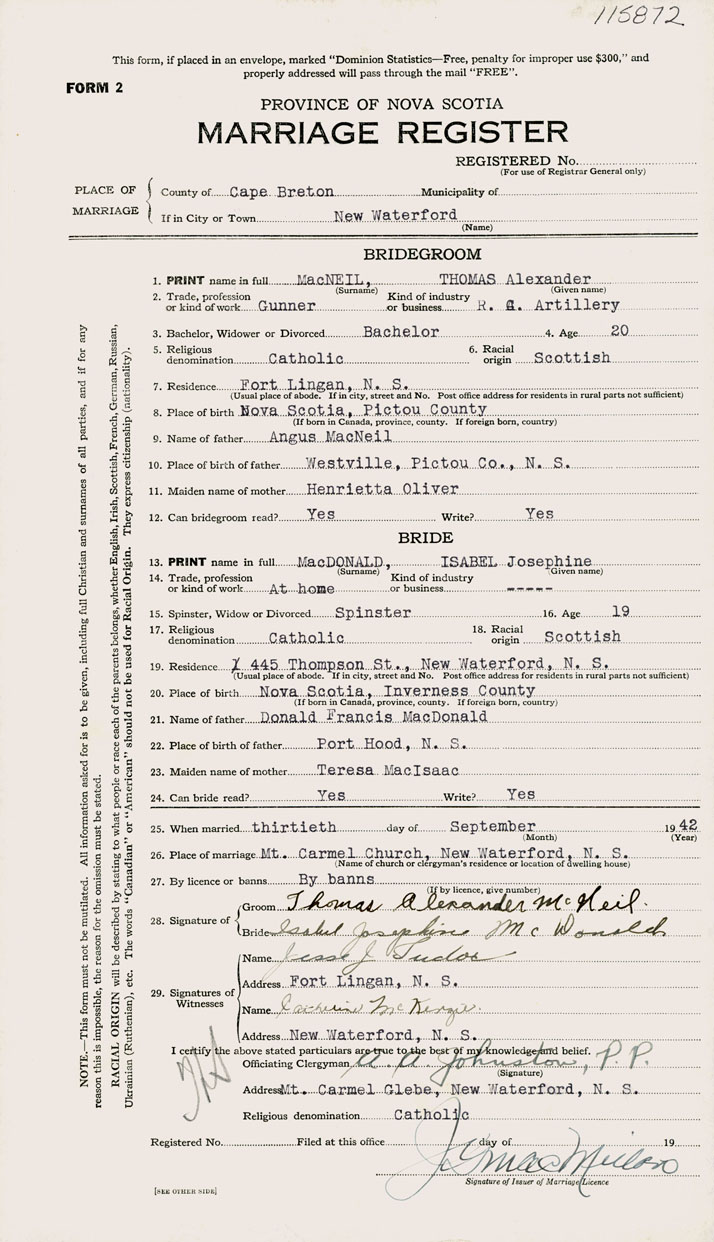 115872
This form, if placed in an envelope, marked "Dominion Statistics—Free, penalty for improper use $300," and
properly addressed will pass through the mail "FREE".
FORM 2
PROVINCE OF NOVA SCOTIA
MARRIAGE REGISTER
REGISTERED No.
(For use of Registrar General only)
PLACE OF MARRIAGE
County of Cape Breton Municipality of
If in City or Town New Waterford
(Name)
BRIDEGROOM
1. PRINT name in full MacNEIL, THOMAS Alexander
(Surname) (Given name)
2. Trade, profession or kind of work Gunner Kind of industry or business R. C. Artillery
3. Bachelor, Widower or Divorced Bachelor 4. Age 20
5. Religious denomination Catholic 6. Racial origin Scottish
7. Residence Fort Lingan, N. S.
(Usual place of abode. If in city, street and No. Post office address for residents in rural parts not sufficient)
8. Place of birth Nova Scotia, Pictou County
(If born in Canada, province, county. If foreign born, country)
9. Name of father Angus MacNeil
10. Place of birth of father Westville, Pictou Co., N. S.
11. Maiden name of mother Henrietta Oliver
12. Can bridegroom read? Yes Write? Yes
BRIDE
13. PRINT name in full MacDONALD, ISABEL Josephine
(Surname) (Given name)
14. Trade, profession or kind of work At home Kind of industry or business -----
15. Spinster, Widow or Divorced Spinster 16. Age 19
17. Religious denomination Catholic 18. Racial origin Scottish
19. Residence 445 Thompson St., New Waterford, N. S.
(Usual place of abode. If in city, street and No. Post office address for residents in rural parts not sufficient)
20. Place of birth Nova Scotia, Inverness County
(If born in Canada, province, county. If foreign born, country)
21. Name of father Donald Francis MacDonald
22. Place of birth of father Port Hood, N. S.
23. Maiden name of mother Teresa MacIsaac
24. Can bride read? Yes Write? Yes
25. When married thirtieth day of September 19 42
(Month) (Year)
26. Place of marriage Mt. Carmel Church, New Waterford, N. S.
(Name of church or clergyman's residence or location of dwelling house)
27. By licence or banns By banns
(If by licence, give number)
28. Signature of
Groom Thomas Alexander McNeil.
Bride Isabel Josephine McDonald
29. Signatures of Witnesses
Name Jesse J Tudor
Address Fort Lingan, N. S.
Name Catherine McKenzie.
Address New Waterford, N. S.
I certify the above stated particulars are true to the best of my knowledge and belief.
Officiating Clergyman A. A. Johnston, P. P.
(Signature)
Address Mt. Carmel Glebe, New Waterford, N. S.
Religious denomination Catholic
Registered No. Filed at this office day of 19
Signature of Issuer of Marriage Licence
[SEE OTHER SIDE]
NOTE.—This form must not be mutilated. All information asked for is to be given, including full Christian and surnames of all parties, and if for any
reason this is impossible, the reason for the omission must be stated.
RACIAL ORIGIN will be described by stating to what people or race each of the parents belongs, whether English, Irish, Scottish, French, German, Russian,
Ukrainian (Ruthenian), etc. The words "Canadian" or "American" should not be used for Racial Origin. They express citizenship (nationality).